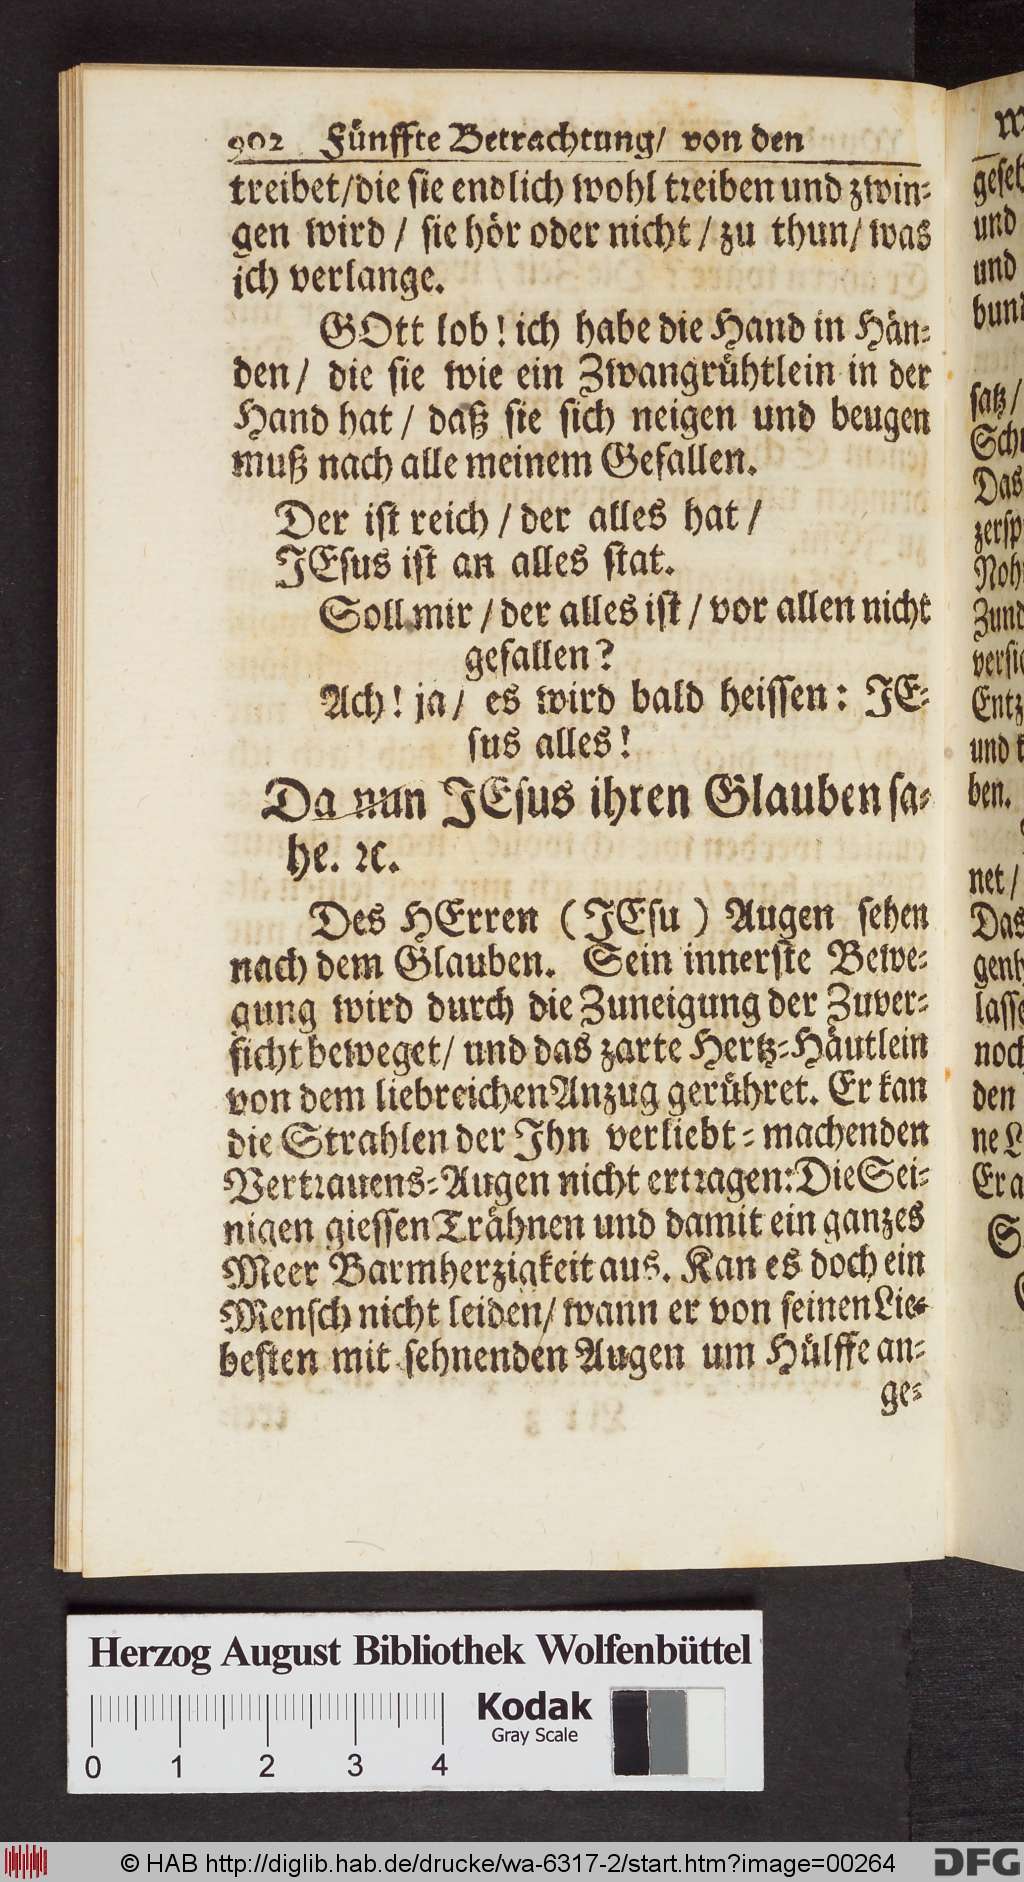 902 Fünffte Betrachtung/ von den
treibet/die sie endlich wohl treiben und zwin-
gen wird / sie hör oder nicht / zu thun/ was
ich verlange.
GOtt lob! ich habe die Hand in Hän-
den/ die sie wie ein Zwangrühtlein in der
Hand hat / daß sie sich neigen und beugen
muß nach alle meinem Gefallen.
Der ist reich / der alles hat /
JEsus ist an alles stat.
Soll mir / der alles ist / vor allen nicht
gefallen?
Ach! ja/ es wird bald heissen: JE-
sus alles!
Da nun JEsus ihren Glauben sa-
he. ꝛc.
Des HErren (JEsu) Augen sehen
nach dem Glauben. Sein innerste Bewe-
gung wird durch die Zuneigung der Zuver-
sicht beweget/ und das zarte Hertz-Häutlein
von dem liebreichen Anzug gerühret. Er kan
die Strahlen der Jhn verliebt-machenden
Vertrauens-Augen nicht ertragen: Die Sei-
nigen giessen Trähnen und damit ein ganzes
Meer Barmherzigkeit aus. Kan es doch ein
Mensch nicht leiden/ wann er von seinen Lie-
besten mit sehnenden Augen um Hülffe an-
ge-
geseh
und
und
bund
satz/
Schr
Das
zersp
Noh
Zund
versic
Entz
und k
ben.
net /
Das
genh
lasse
noch
den
ne L
Er a
Herzog August Bibliothek Wolfenbüttel
Kodak
Gray Scale
0 1 2 3 4
© HAB http://diglib.hab.de/drucke/wa-6317-2/start.htm?image=00264
DFG